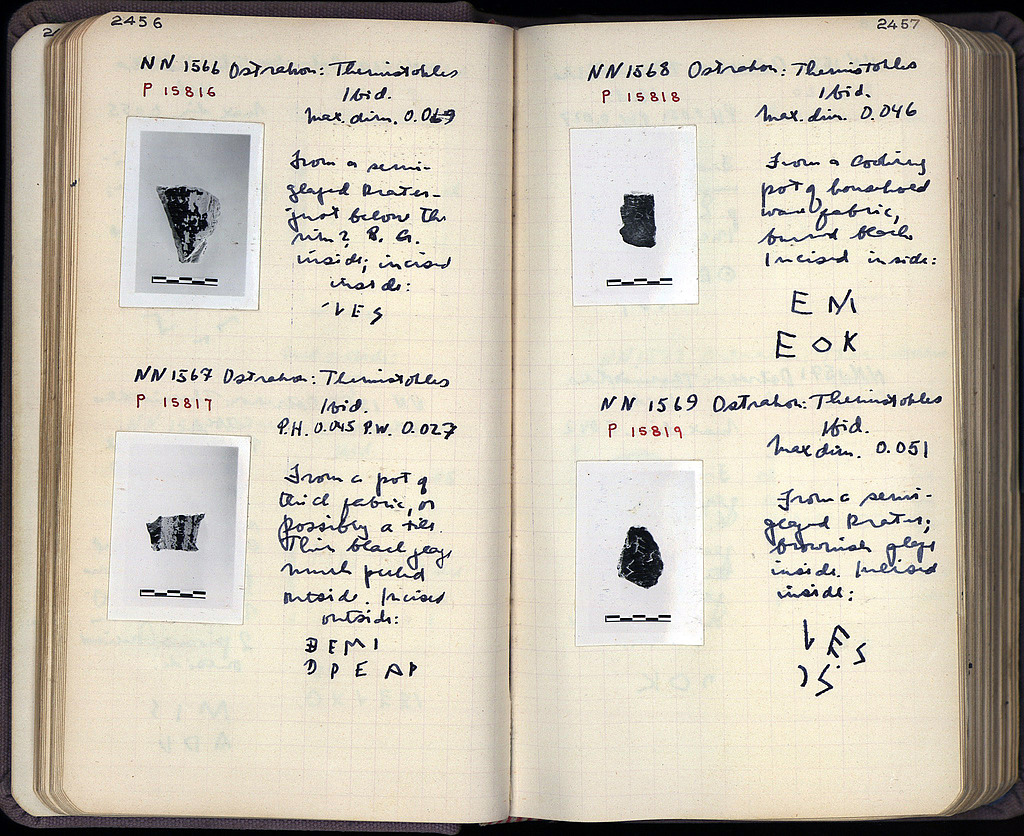 2456
NN 1566 Ostrakon: Themistokles
P 15816
Ibid.
Max. dim. 0.069
From a semi-
glazed krater-
just below the
rim? B. G.
inside; incised
inside:
NN 1567 Ostrakon: Themistokles
P 15817
Ibid.
P.H. 0.045 P.W. 0.027
From a pot of
thick fabric, or
possibly a tile.
Thin black glaze
much peeled
outside. Incised
outside:
2457
NN 1568 Ostrakon: Themistokles
P 15818
Ibid.
Max. dim. 0.046
From a cooking
pot of household
ware fabric,
burned black
Incised inside:
E M
E O K
NN 1569 Ostrakon: Themistokles
P 15819
Ibid.
Max dim. 0.051
From a semi-
glazed krater;
brownish glaze
inside. Incised
inside: